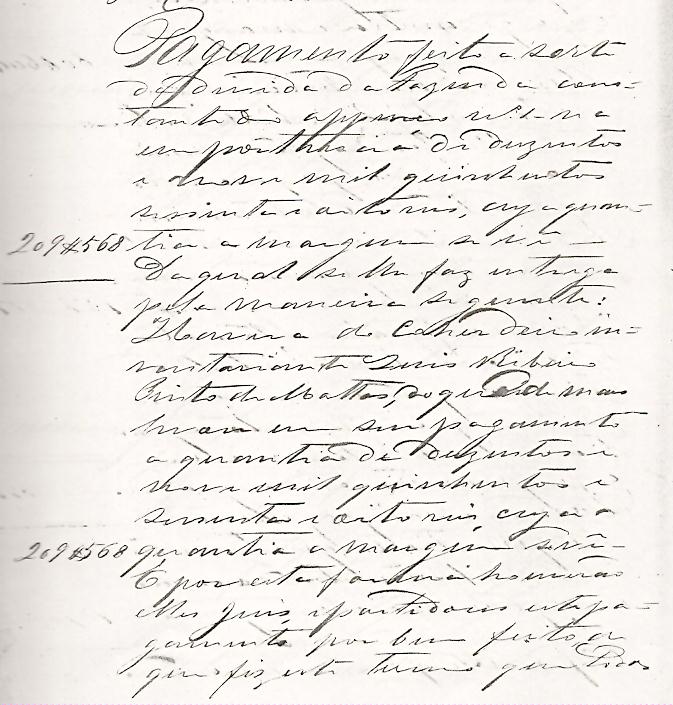 Pagamento feito a sorte
da divida da Fazenda cons-
tante do appenso nº 1 na
importancia de duzentos
e nove mil quinhentos
sessenta e oito reis, cuja quan-
209$568 tia a margem se vê -
Da qual se lhe faz entrega
pela maneira seguinte:
Haverá do coherdeiro in-
ventariante Luis Ribeiro
Pinto de Mattos, do que de mais
levou em seu pagamento
a quantia de duzentos e
nove mil quinhentos e
sessenta e oito reis cuja a
209$568 quantia a margem se vê -
E por esta forma houverão
elles Juis, e partidores este pa-
gamento por bem feito, de
que fiz este termo que